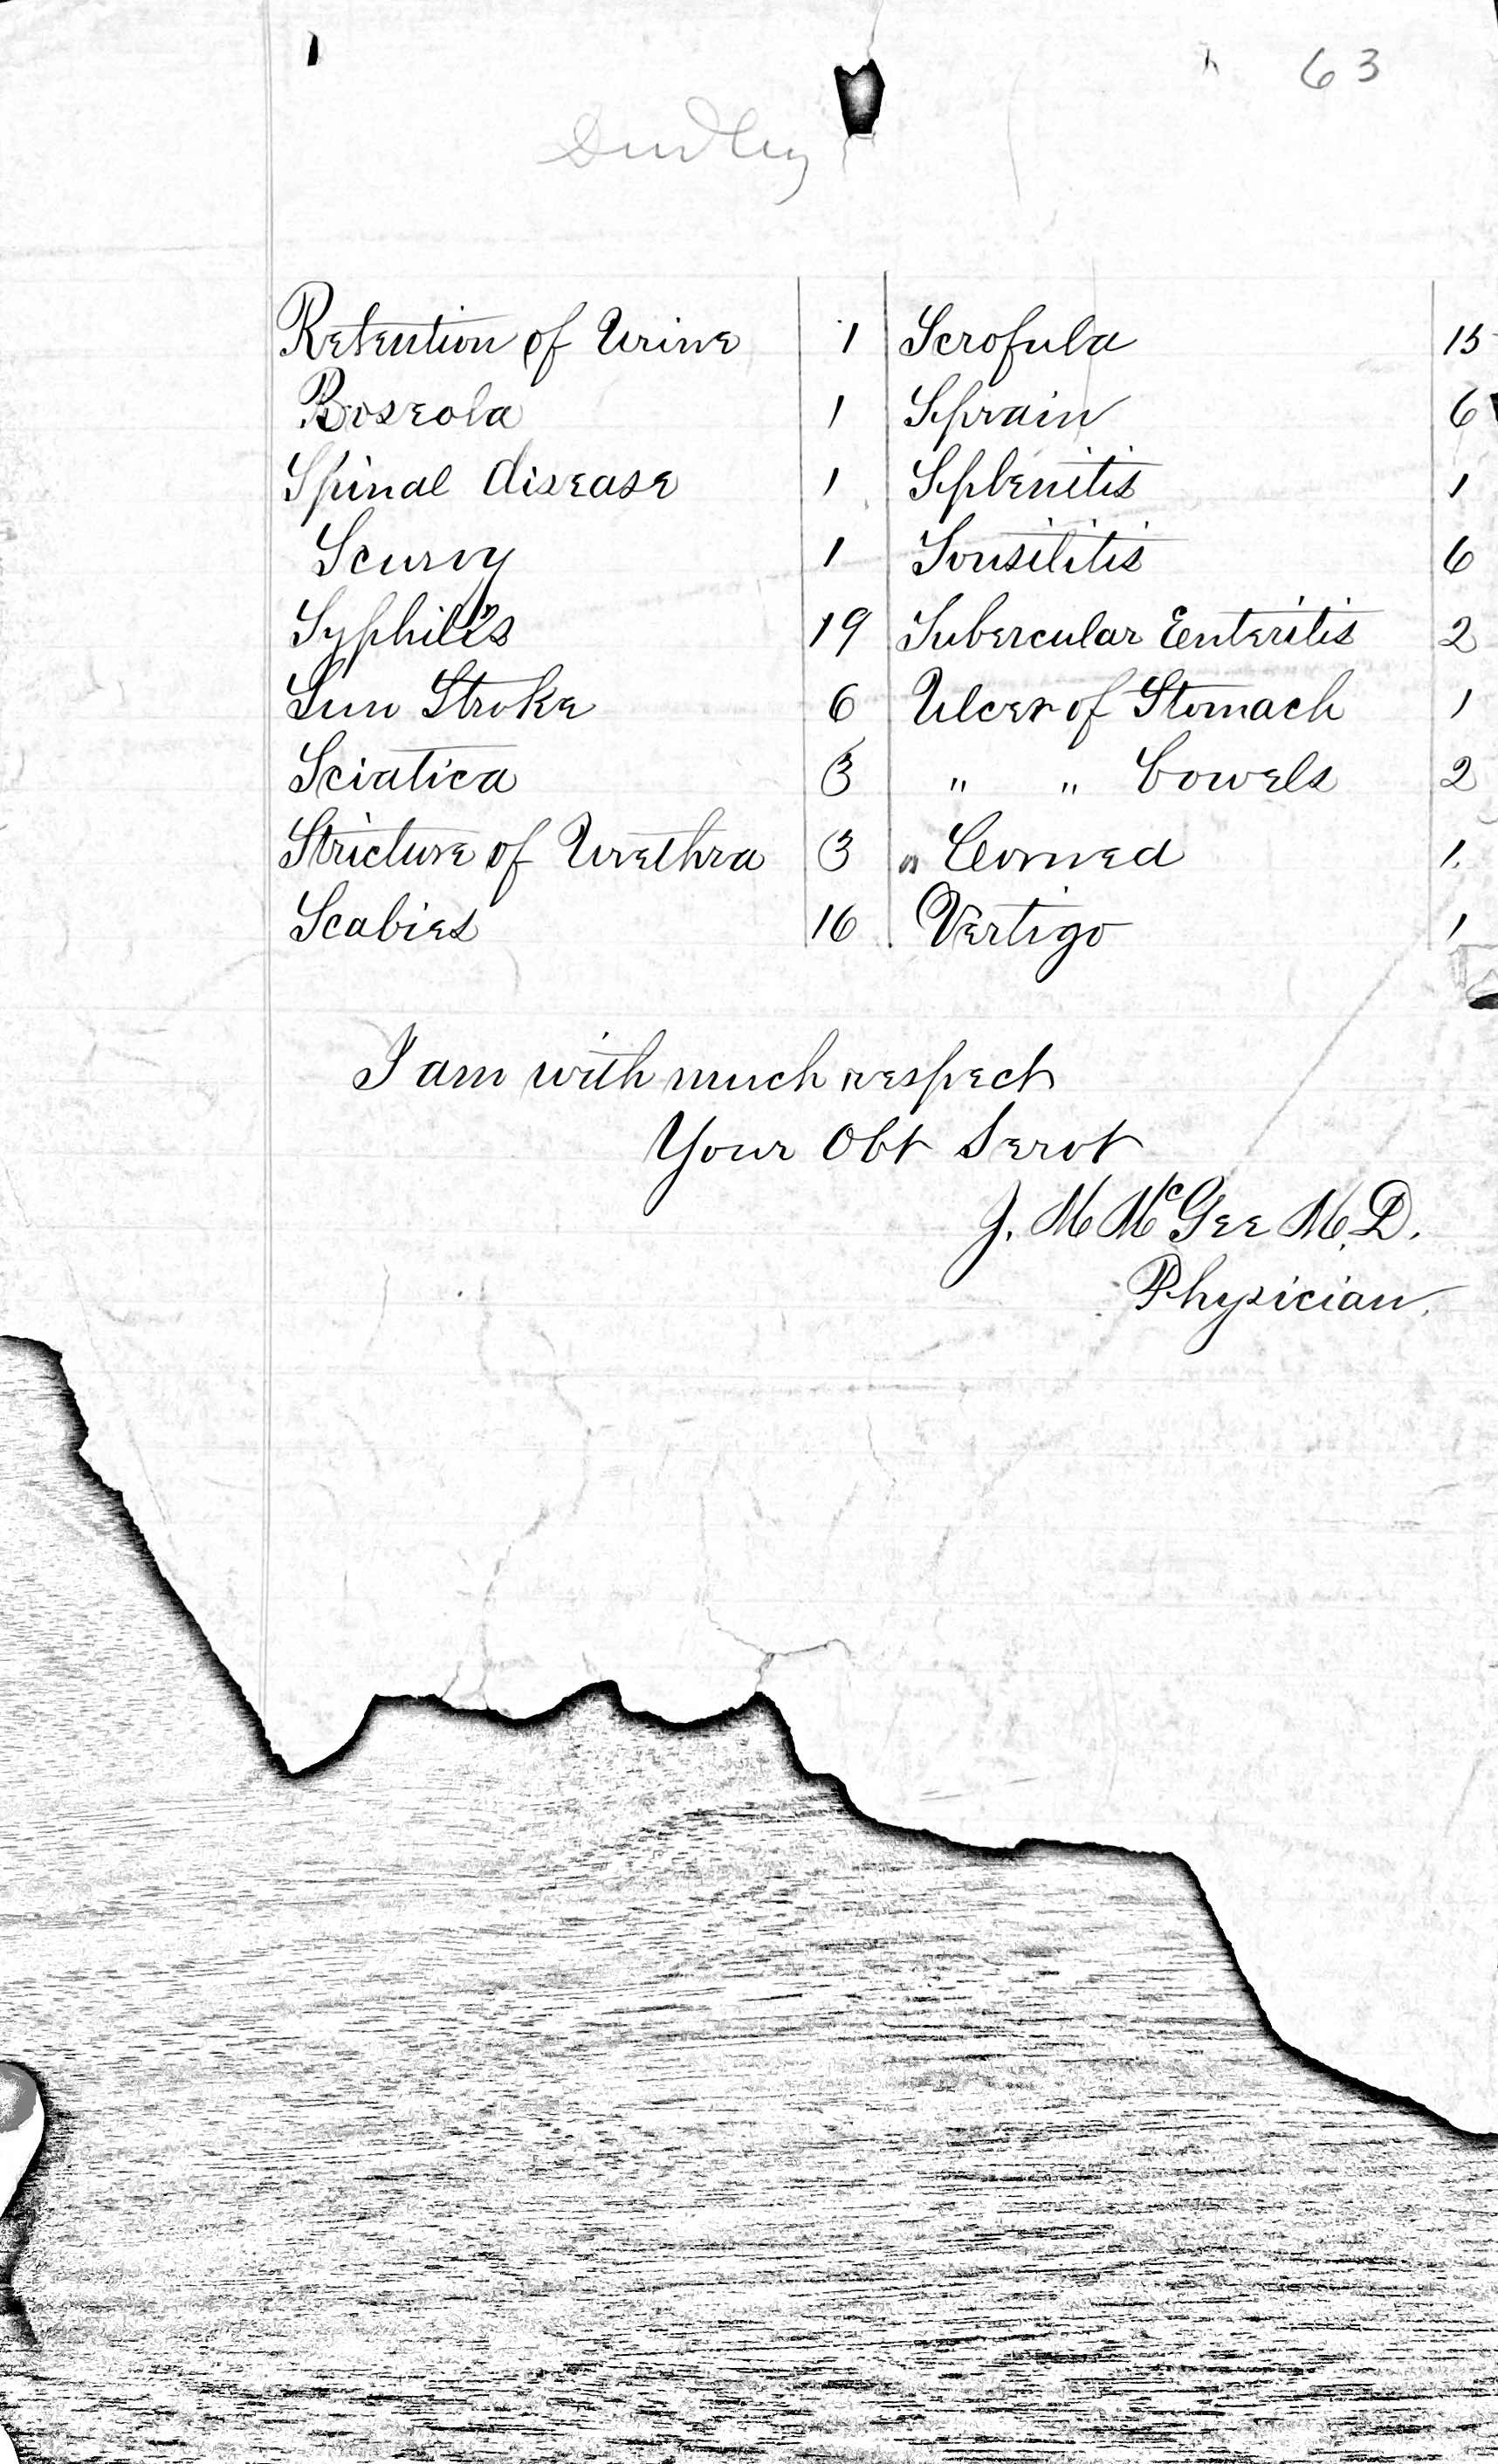 63
Dudley
Retention of Urine 1 Scrofula 15
Roseola 1 Sprain 6
Spinal disease 1 Splenitis 1
Scurvy 1 Tonsilitis 6
Syphilis 19 Tubercular Enteritis 2
Sun Stroke 6 Ulcer of Stomach 1
Sciatica 3 " " bowels 2
Stricture of Urethra 3 " Cornea 1
Scabies 16 Vertigo 1
I am with much respect
Your Obt Servt
J. M McGee M.D.
Physician